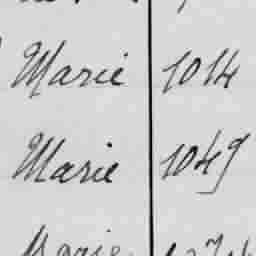 Marie 1014
Marie 1049
Marie